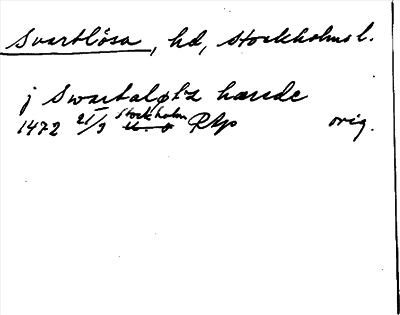 Svartlösa, hd, Stockholms l.
j Swartaløtz hærede
1472 21/3 Stockholm RAp orig.